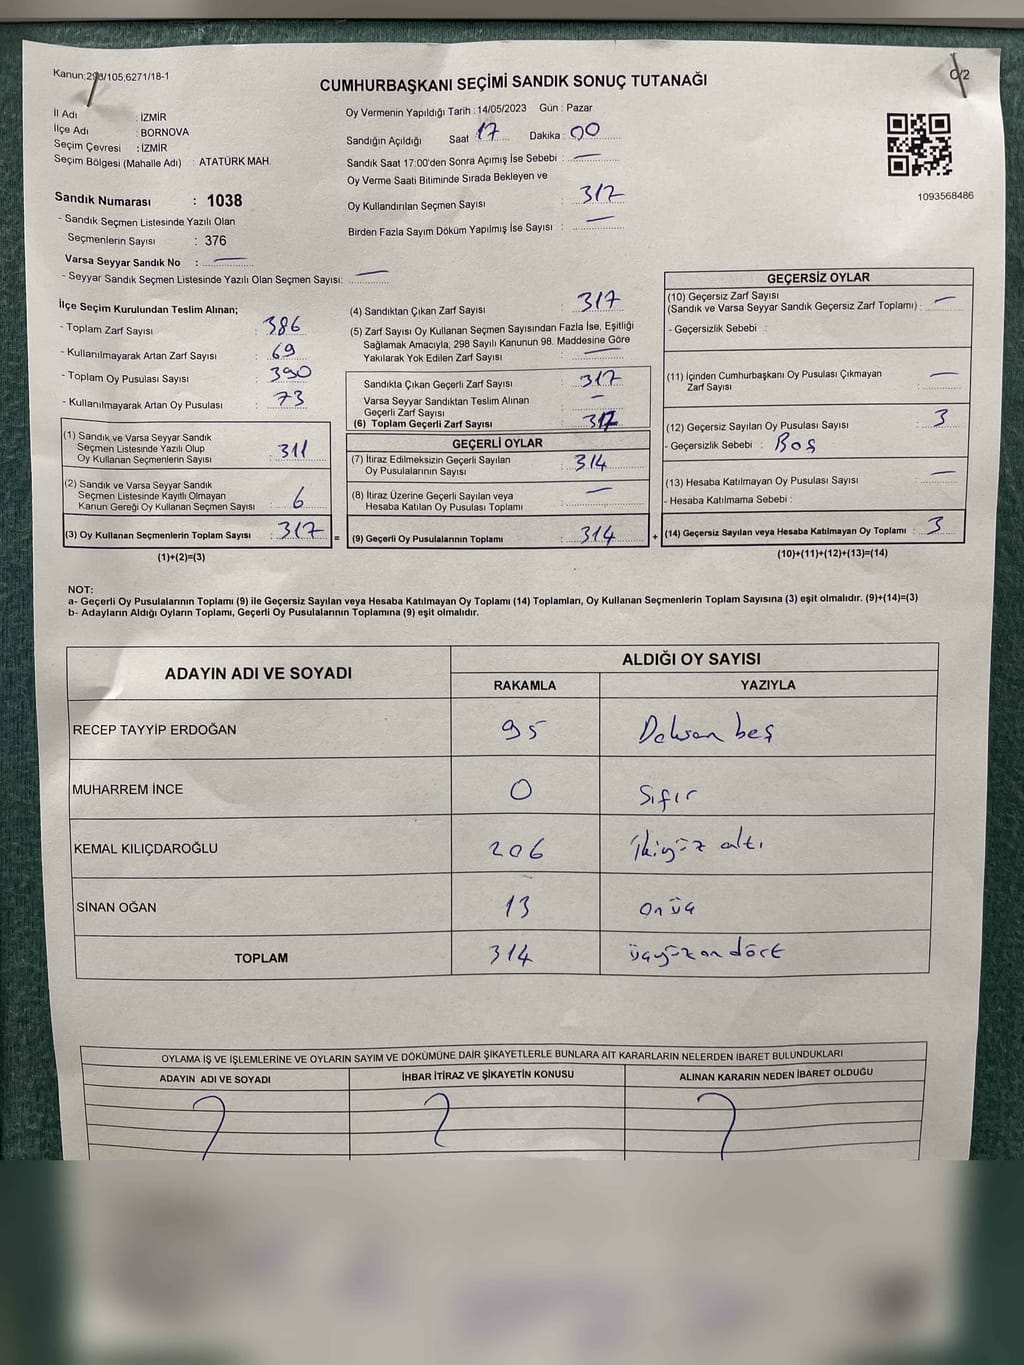 Kanun;298/105;6271/18-1
CUMHURBAŞKANI SEÇİMİ SANDIK SONUÇ TUTANAĞI
C/2
İl Adı : İZMİR
İlçe Adı : BORNOVA
Seçim Çevresi : İZMİR
Seçim Bölgesi (Mahalle Adı) : ATATÜRK MAH.
Sandık Numarası : 1038
- Sandık Seçmen Listesinde Yazılı Olan
Seçmenlerin Sayısı : 376
Varsa Seyyar Sandık No :
- Seyyar Sandık Seçmen Listesinde Yazılı Olan Seçmen Sayısı:
Oy Vermenin Yapıldığı Tarih : 14/05/2023 Gün : Pazar
Sandığın Açıldığı Saat 17 Dakika : 00
Sandık Saat 17:00'den Sonra Açımış İse Sebebi :
Oy Verme Saati Bitiminde Sırada Bekleyen ve
Oy Kullandırılan Seçmen Sayısı : 317
Birden Fazla Sayım Döküm Yapılmış İse Sayısı :
1093568486
İlçe Seçim Kurulundan Teslim Alınan;
- Toplam Zarf Sayısı : 386
- Kullanılmayarak Artan Zarf Sayısı : 69
- Toplam Oy Pusulası Sayısı : 390
- Kullanılmayarak Artan Oy Pusulası : 73
(1) Sandık ve Varsa Seyyar Sandık
Seçmen Listesinde Yazılı Olup
Oy Kullanan Seçmenlerin Sayısı : 311
(2) Sandık ve Varsa Seyyar Sandık
Seçmen Listesinde Kayıtlı Olmayan
Kanun Gereği Oy Kullanan Seçmen Sayısı : 6
(3) Oy Kullanan Seçmenlerin Toplam Sayısı : 317 =
(1)+(2)=(3)
(4) Sandıktan Çıkan Zarf Sayısı : 317
(5) Zarf Sayısı Oy Kullanan Seçmen Sayısından Fazla İse, Eşitliği
Sağlamak Amacıyla; 298 Sayılı Kanunun 98. Maddesine Göre
Yakılarak Yok Edilen Zarf Sayısı :
Sandıkta Çıkan Geçerli Zarf Sayısı : 317
Varsa Seyyar Sandıktan Teslim Alınan
Geçerli Zarf Sayısı :
(6) Toplam Geçerli Zarf Sayısı : 317
GEÇERLİ OYLAR
(7) İtiraz Edilmeksizin Geçerli Sayılan
Oy Pusulalarının Sayısı : 314
(8) İtiraz Üzerine Geçerli Sayılan veya
Hesaba Katılan Oy Pusulası Toplamı :
(9) Geçerli Oy Pusulalarının Toplamı : 314 +
GEÇERSİZ OYLAR
(10) Geçersiz Zarf Sayısı
(Sandık ve Varsa Seyyar Sandık Geçersiz Zarf Toplamı) :
- Geçersizlik Sebebi :
(11) İçinden Cumhurbaşkanı Oy Pusulası Çıkmayan
Zarf Sayısı :
(12) Geçersiz Sayılan Oy Pusulası Sayısı : 3
- Geçersizlik Sebebi : Boş
(13) Hesaba Katılmayan Oy Pusulası Sayısı :
- Hesaba Katılmama Sebebi :
(14) Geçersiz Sayılan veya Hesaba Katılmayan Oy Toplamı : 3
(10)+(11)+(12)+(13)=(14)
NOT:
a- Geçerli Oy Pusulalarının Toplamı (9) ile Geçersiz Sayılan veya Hesaba Katılmayan Oy Toplamı (14) Toplamları, Oy Kullanan Seçmenlerin Toplam Sayısına (3) eşit olmalıdır. (9)+(14)=(3)
b- Adayların Aldığı Oyların Toplamı, Geçerli Oy Pusulalarının Toplamına (9) eşit olmalıdır.
ADAYIN ADI VE SOYADI
ALDIĞI OY SAYISI
RAKAMLA YAZIYLA
RECEP TAYYİP ERDOĞAN 95 Doksan beş
MUHARREM İNCE 0 Sıfır
KEMAL KILIÇDAROĞLU 206 İkiyüz altı
SİNAN OĞAN 13 onüç
TOPLAM 314 üçyüzon dört
OYLAMA İŞ VE İŞLEMLERİNE VE OYLARIN SAYIM VE DÖKÜMÜNE DAİR ŞİKAYETLERLE BUNLARA AİT KARARLARIN NELERDEN İBARET BULUNDUKLARI
ADAYIN ADI VE SOYADI İHBAR İTİRAZ VE ŞİKAYETİN KONUSU ALINAN KARARIN NEDEN İBARET OLDUĞU